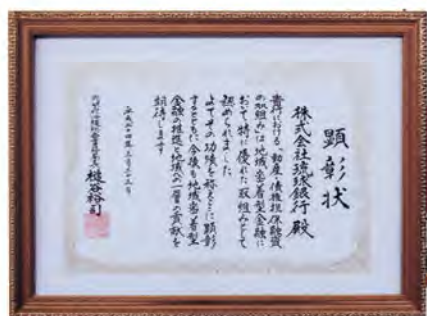 顕彰状
株式会社琉球銀行殿
貴行における「動産・債権担保融資
の取組み」は地域密着型金融に
おいて、特に優れた取組みとして
認められました
よってその功績を称えここに顕彰
するとともに今後も地域密着型
金融の推進と地域への一層の貢献を
期待します
平成二十四年三月二十三日
樋谷裕司